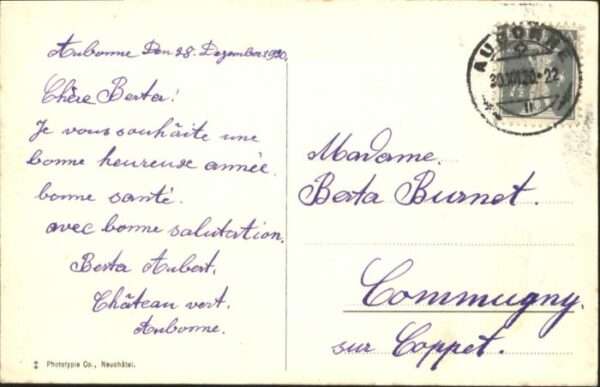 Aubonne Den 28. Dezember 1920.
Chère Berta!
Je vous souhâite une
bonne heureuse année.
bonne santé.
avec bonne salutation.
Berta Aubert.
Château vert.
Aubonne.
Phototypie Co., Neuchâtel.
AUBONNE
30.XII.20.-22
Madame.
Berta Burnet.
Commugny.
sur Coppet.